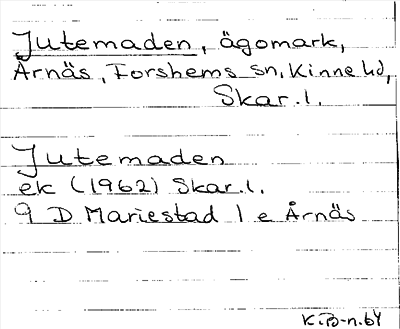 Jutemaden, ägomark,
Årnäs, Forshems sn, Kinne hd,
Skar. l.
Jutemaden
ek (1962) Skar. l.
9 D Mariestad 1 e Årnäs
K.B-n. 64